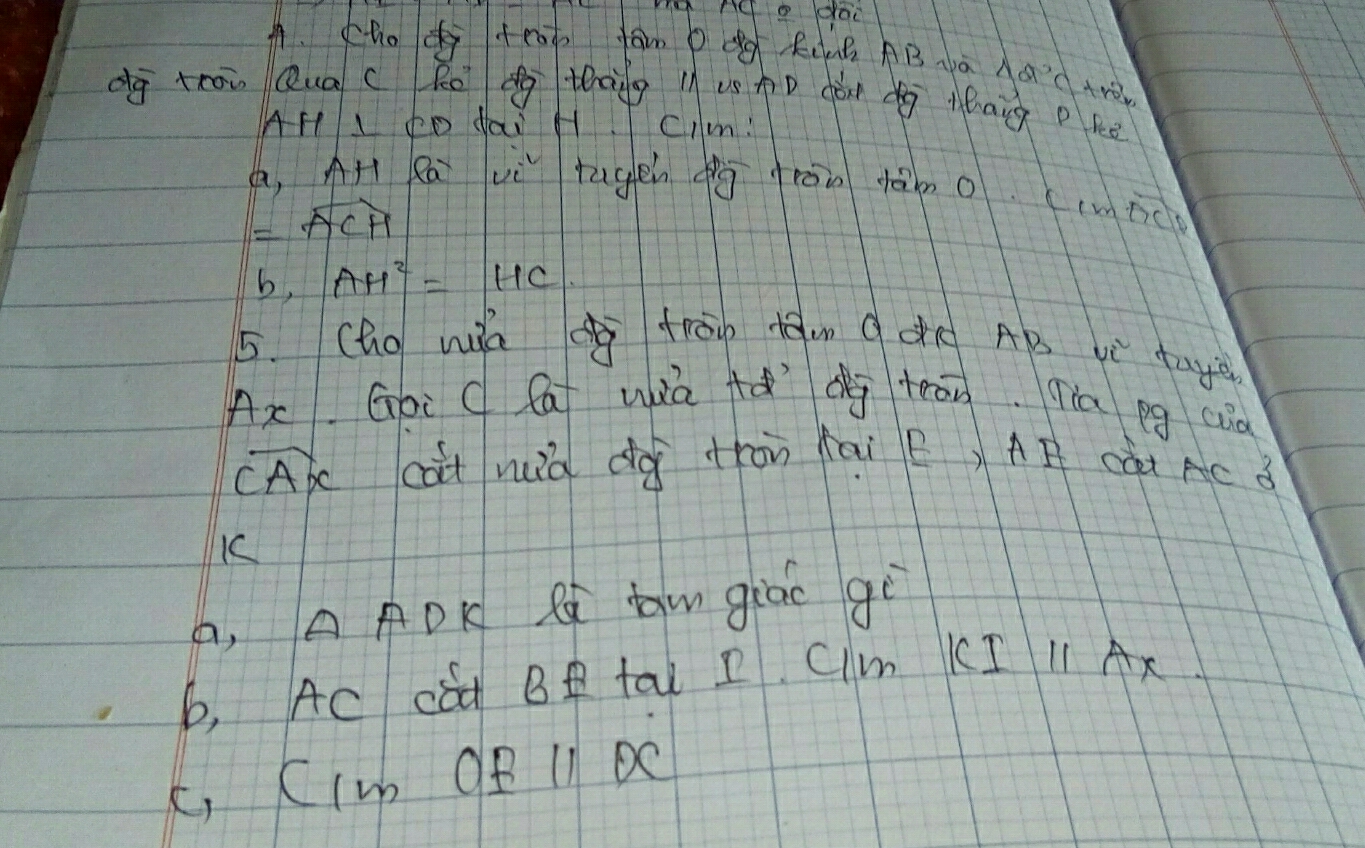 AC đài
4. Cho đg tròn tâm O đg kính AB và trên
đg tròn Qua C kẻ đg thẳng // vs AD cắt đg thẳng D kẻ
AH ⊥ CD tại H. C/m:
a, AH là vi tuyến đg tròn tâm O. C/m
= ACH
b, AH² = HC.
5. Cho nửa đg tròn tâm O đk AB vi tuyến
Ax. Gọi C là nửa đg tròn. Tia pg của
CAx cắt nửa đg tròn tại E, AE cắt AC ở
K
a, Δ ADK là tam giác gì
b, AC cắt BE tại I. C/m KI // Ax.
c, C/m OE // DC